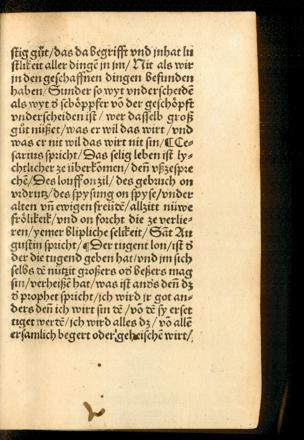 stig gůt/das da begrifft vnd inhat lu
stlikeit aller dingē in jm/Nit als wir
in den geschaffnen dingen befunden
haben/Sunder so wyt vnderscheidē
als wyt ď schöppfer võ der geschöpft
vnderscheiden ist/wer dasselb groß
gůt nüßet/was er wil das wirt/vnd
was er nit wil das wirt nit sin/¶Ce
sarius spricht/Das selig leben ist ly⸗
chtlicher ze überkömen/deñ vßzespre
chē/Des louff on zil/des gebruch on
vrdrutz/des spysung on spyse/vnder
alten vñ ewigen freudē/allzit nüwe
frölikeit/vnd on forcht die ze verlie⸗
ren/yemer blipliche selikeit/Sāt Au
gustin spricht/¶Der tugent lon/ist ď
der die tugend geben hat/vnd jm sich
selbs dē nützit großers oď beßers mag
sin/verheißē hat/was ist andˢ deñ dz
ď prophet spricht/ich wird jr got an⸗
ders deñ ich wirt sin dē/võ dē sy erset
tiget werdē/ich wird alles dz/võ allē
ersamlich begert oder geheischē wirt/